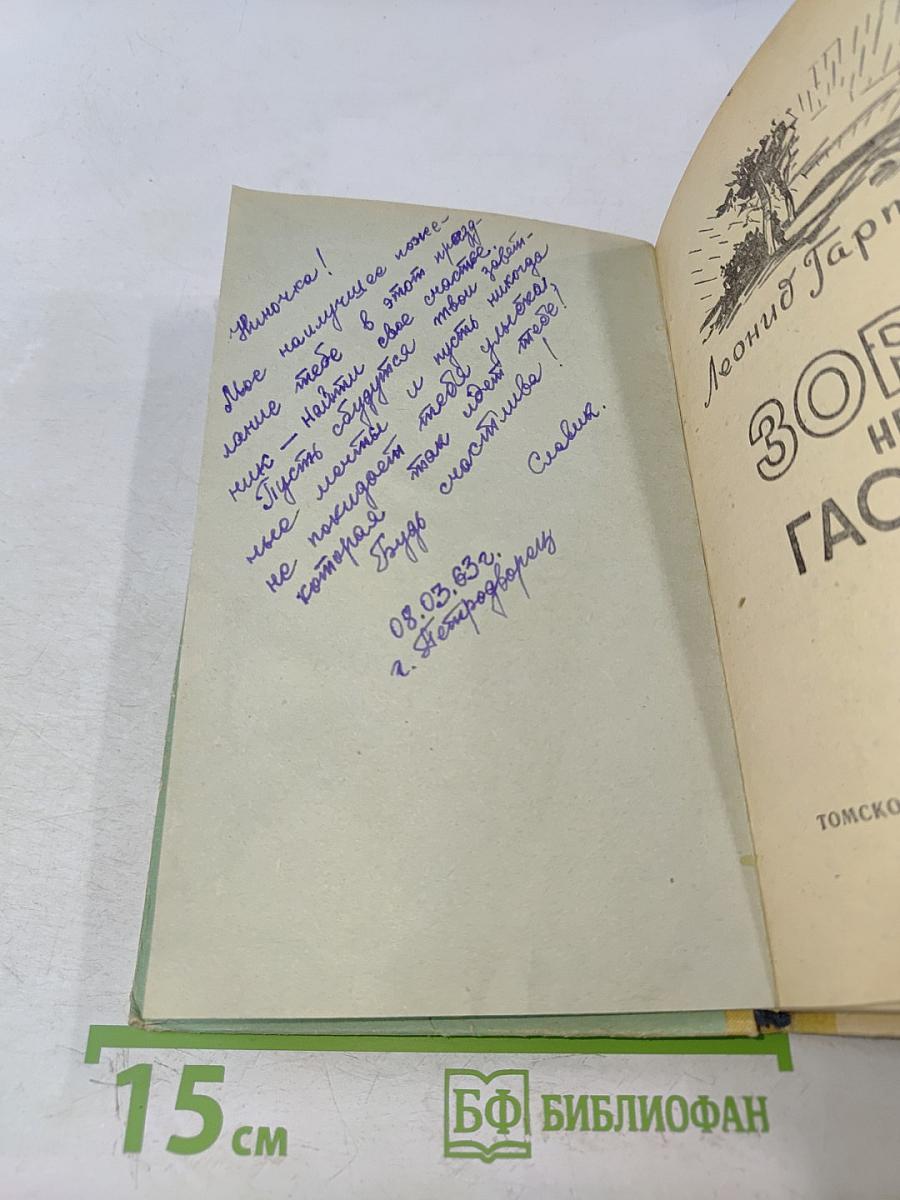 Ниночка!
Мое наилучшее поже-
лание тебе в этот празд-
ник – найти свое счастье.
Пусть сбудутся твои завет-
ные мечты и пусть никогда
не покидает тебя улыбка,
которая так идет тебе!
Будь счастлива!
Славик.
08.03.63г.
г. Петродворец
Леонид Гарп
ЗОВ
НЕ
ГАС
ТОМСКО
15 см
БФ БИБЛИОФАН